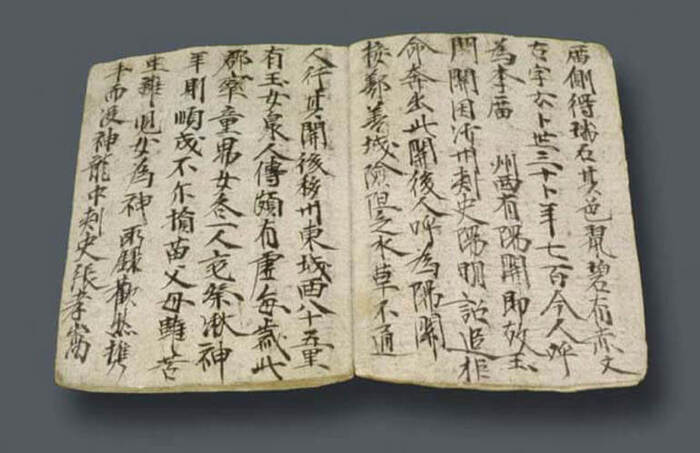 庿側得瑞石其色翠碧有赤文
古字云卜世三十卜年七百今人呼
為李庿　州西有陽關即故玉
門關因沙州刾史陽明詔追拒
命奔出此關後人呼為陽關
接鄯善城險阻乏水草不通
人行其關後移州東城西八十五里
有玉女泉人傳頗有靈每歲此
郡率童男女各一人充祭湫神
年則順成不尔損苗父母雖苦
生離兒女為神所錄歡然攜
手而沒神龍中刾史張孝嵩